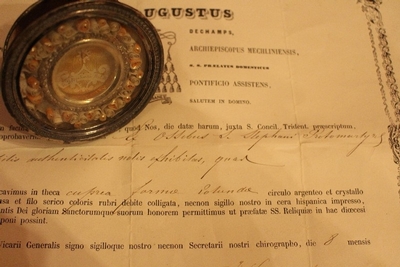 UGUSTUS
DECHAMPS,
ARCHIEPISCOPUS MECHLINIENSIS,
PONTIFICIO ASSISTENS,
SALUTEM IN DOMINO.
quod Nos, die datae harum, juxta S. Concil. Trident. praescriptum,
Ossibus S. Stephani Protomartyris
authenticitatis notis exhibitas, quas
cavimus in theca cuprea formae rotundae circulo argenteo et crystallo
sa et filo serico coloris rubri debite colligata, necnon sigillo nostro in cera hispanica impresso,
antis Dei gloriam Sanctorumque suorum honorem permittimus ut praefatae SS. Reliquiae in hac dioecesi
poni possint.
Vicarii Generalis signo sigilloque nostro necnon Secretarii nostri chirographo, die 8 mensis